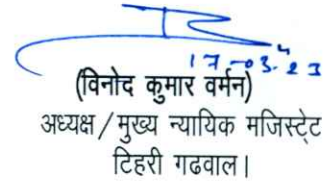 17-03-23
(विनोद कुमार वर्मन)
अध्यक्ष/मुख्य न्यायिक मजिस्ट्रेट
टिहरी गढवाल।